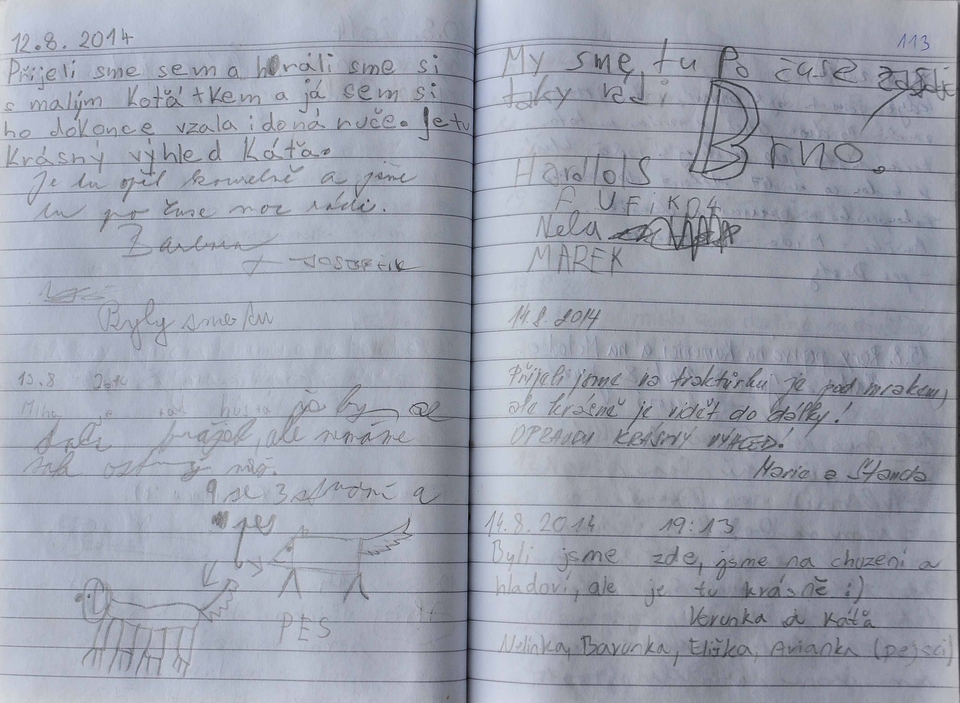 12.8. 2014
Přijeli sme sem a hráli sme si
s malým Koťátkem a já sem si
ho dokonce vzala i do náruče. Je tu
Krásný výhled Káťa.
Je tu opět kouzelně a jsme
tu po čase moc rádi.
Barbora
+ JOSEFÍK
Byly sme tu
13.8 2014
Mlha je tak hustá já by se
dala krájet, ale nemáme
tak ostrý nůž.
9 se 3 a
pes
PES
113
My sme tu Po čase zase
taky rádi
Brno.
Nela
MAREK
14.8.2014
Přijeli jsme na traktůrku je pod mrakem,
ale krásně je vidět do dálky!
OPRAVDU KRÁSNÝ VÝHLED!
Marie a Standa
14.8.2014 19:13
Byli jsme zde, jsme na chození a
hladoví, ale je tu krásně :)
Verunka a Káťa
Nelinka, Barunka, Eliška, Arianka (pejsci)